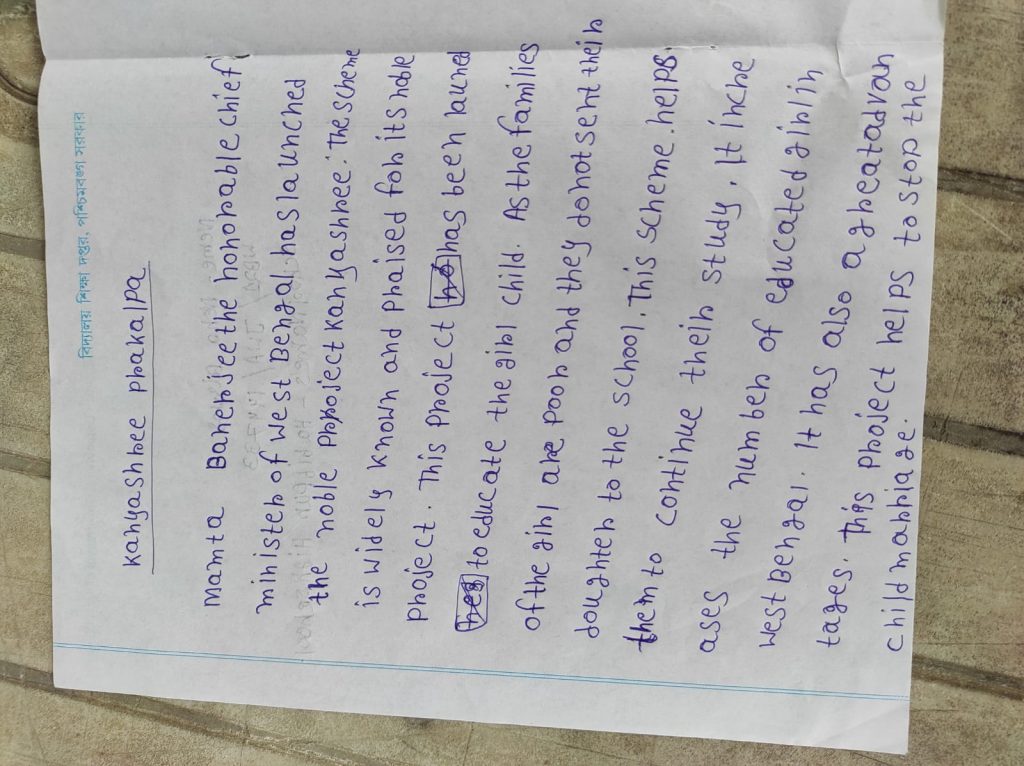 বিদ্যালয় শিক্ষা দপ্তর, পশ্চিমবঙ্গ সরকার
Kanyashree prakalpa
Mamta Banerjee the honorable chief
minister of West Bengal has launched
the noble project Kanyashree. The scheme
is widely known and praised for its noble
project. This project has been launed
to educate the girl child. As the families
of the girl are poor and they do not sent their
doughter to the school. This scheme helps
them to continue their study. It incre
ases the number of educated girl in
West Bengal. It has also a great advan
tages. This project helps to stop the
child marriage.